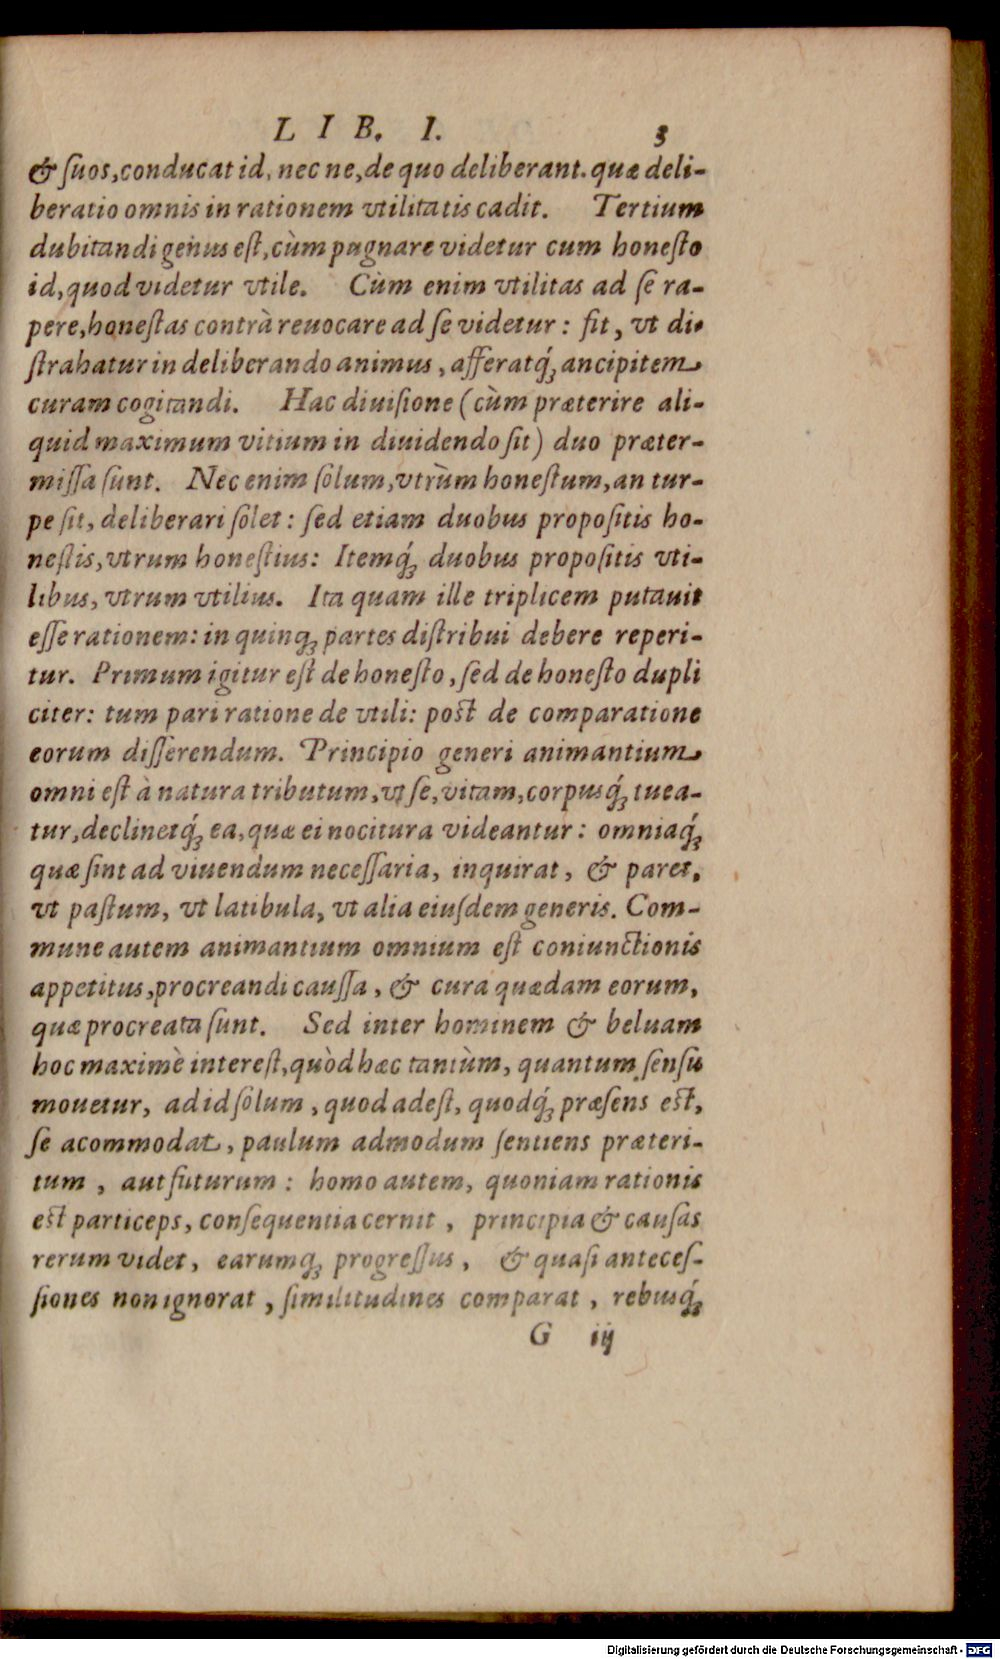 LIB. I. 3
& ſuos, conducat id, nec ne, de quo deliberant. quæ deli-
beratio omnis in rationem vtilitatis cadit. Tertium
dubitandi genus eſt, cùm pugnare videtur cum honeſto
id, quod videtur vtile. Cùm enim vtilitas ad ſe ra-
pere, honeſtas contrà reuocare ad ſe videtur: fit, vt di-
ſtrahatur in deliberando animus, afferatq́; ancipitem
curam cogitandi. Hac diuiſione (cùm præterire ali-
quid maximum vitium in diuidendo ſit) duo præter-
miſſa ſunt. Nec enim ſolum, vtrùm honeſtum, an tur-
pe ſit, deliberari ſolet: ſed etiam duobus propoſitis ho-
neſtis, vtrum honeſtius: Itemq́; duobus propoſitis vti-
libus, vtrum vtilius. Ita quam ille triplicem putauit
eſſe rationem: in quinq; partes diſtribui debere reperi-
tur. Primum igitur eſt de honeſto, ſed de honeſto dupli
citer: tum pari ratione de vtili: poſt de comparatione
eorum diſſerendum. Principio generi animantium
omni eſt à natura tributum, vt ſe, vitam, corpusq́; tuea-
tur, declinetq́; ea, quæ ei nocitura videantur: omniaq́;
quæ ſint ad viuendum neceſſaria, inquirat, & paret,
vt paſtum, vt latibula, vt alia eiuſdem generis. Com-
mune autem animantium omnium eſt coniunctionis
appetitus, procreandi cauſſa, & cura quædam eorum,
quæ procreata ſunt. Sed inter hominem & beluam
hoc maximè intereſt, quòd hæc tantùm, quantum ſenſu
mouetur, ad id ſolum, quod adeſt, quodq́; præſens eſt,
ſe acommodat, paulum admodum ſentiens præteri-
tum, aut futurum: homo autem, quoniam rationis
eſt particeps, conſequentia cernit, principia & cauſas
rerum videt, earumq; progreſſus, & quaſi anteceſ-
ſiones non ignorat, ſimilitudines comparat, rebusq́;
G iij
Digitalisierung gefördert durch die Deutsche Forschungsgemeinschaft - DFG